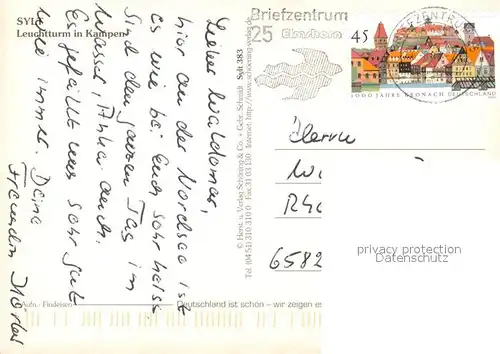 SYLT
Leuchtturm in Kampen
Lieber Waldemar,
hier an der Nordsee ist
es wie bei Euch sehr heiss
Sind den ganzen Tag im
Wasser, Anke auch.
Es gefällt uns sehr gut
wie immer. Deine
Freundin
Aufn.: Findeisen
Deutschland ist schön – wir zeigen es
© Herst. u. Verlag Schöning & Co. + Gebr. Schmidt
Tel. (04 51) 310 310 Fax 31 03 130 Internet: http://www.schoening-verlag.de
Sylt 383
Briefzentrum
25 Elmshorn
BRIEFZENTRUM
45
1000 JAHRE KRONACH DEUTSCHLAND
Herrn
W
Rh
6582
privacy protection
Datenschutz